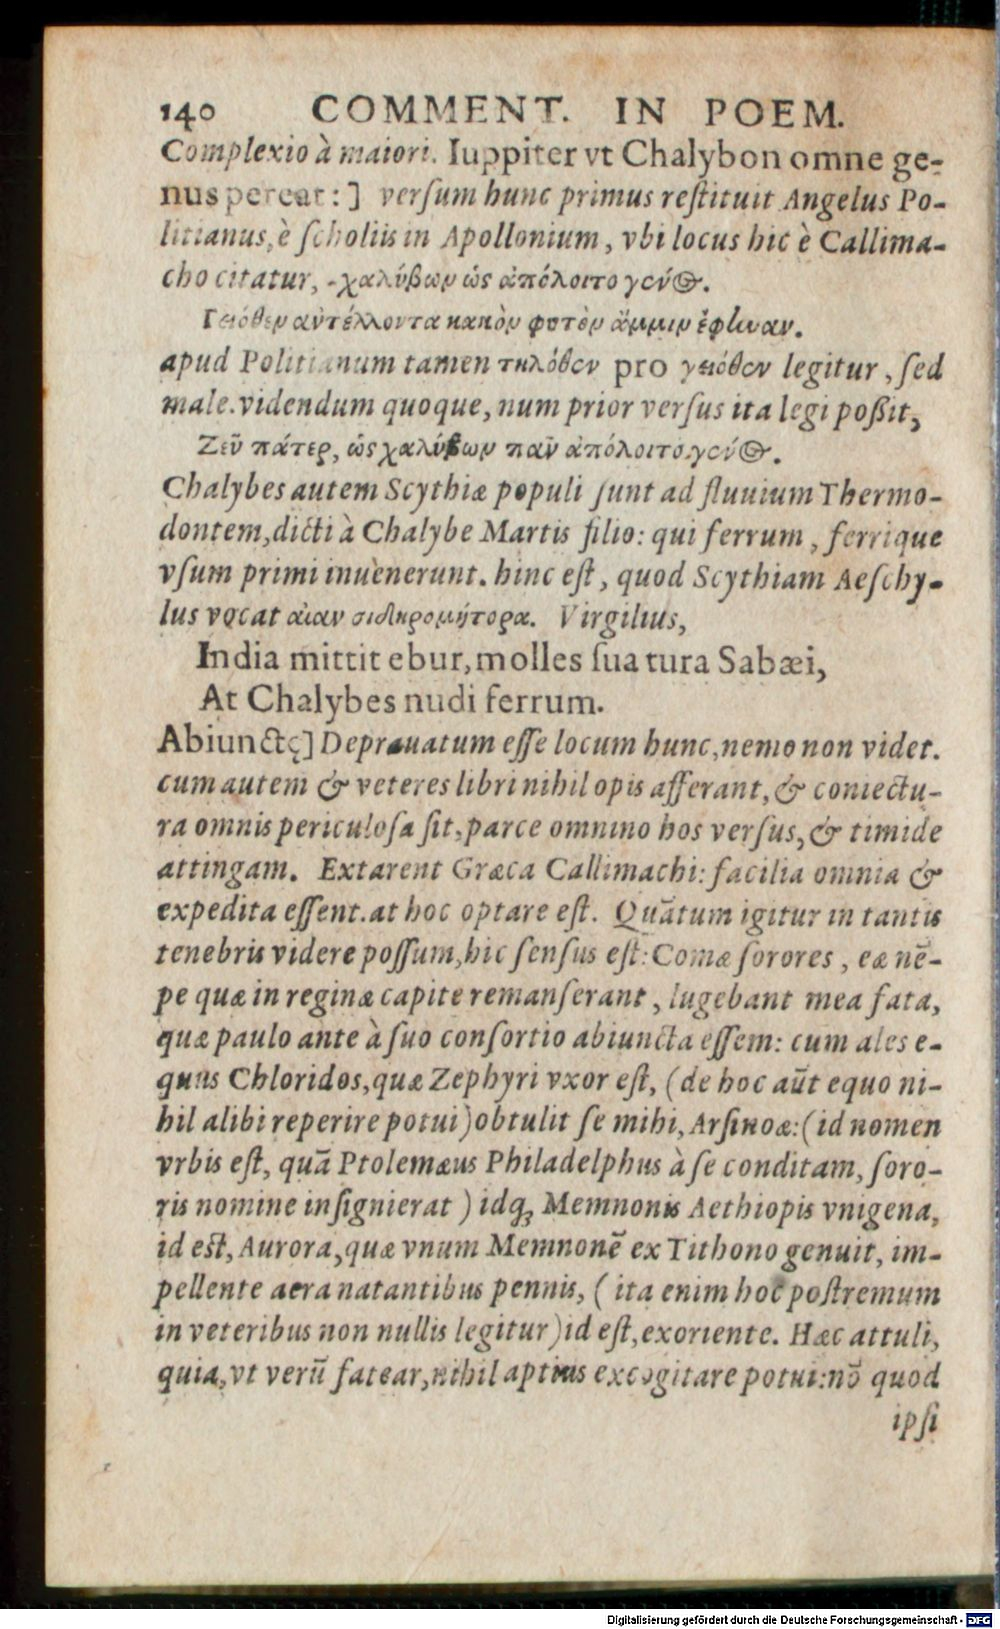 140 COMMENT. IN POEM.
Complexio à maiori. Iuppiter vt Chalybon omne ge-
nus pereat: ] versum hunc primus restituit Angelus Po-
litianus, è scholiis in Apollonium, vbi locus hic è Callima-
cho citatur, -χαλύβων ὡς ἀπόλοιτο γένος.
Γειόθεν ἀντέλλοντα κακὸν φυτὸν ἄμμιν ἔφηναν.
apud Politianum tamen τηλόθεν pro γειόθεν legitur, sed
male. videndum quoque, num prior versus ita legi poßit,
Ζεῦ πάτερ, ὡς χαλύβων πᾶν ἀπόλοιτο γένος.
Chalybes autem Scythiæ populi sunt ad fluuium Thermo-
dontem, dicti à Chalybe Martis filio: qui ferrum, ferrique
vsum primi inuenerunt. hinc est, quod Scythiam Aeschy-
lus vocat αἶαν σιδηρομήτορα. Virgilius,
India mittit ebur, molles sua tura Sabæi,
At Chalybes nudi ferrum.
Abiunctę] Deprauatum esse locum hunc, nemo non videt.
cum autem & veteres libri nihil opis afferant, & coniectu-
ra omnis periculosa sit, parce omnino hos versus, & timide
attingam. Extarent Græca Callimachi: facilia omnia &
expedita essent. at hoc optare est. Quātum igitur in tantis
tenebris videre possum, hic sensus est: Comæ sorores, eæ nē-
pe quæ in reginæ capite remanserant, lugebant mea fata,
quæ paulo ante à suo consortio abiuncta essem: cum ales e-
quus Chloridos, quæ Zephyri vxor est, (de hoc aūt equo ni-
hil alibi reperire potui) obtulit se mihi, Arsinoæ: (id nomen
vrbis est, quā Ptolemæus Philadelphus à se conditam, soro-
ris nomine insignierat) idq; Memnonis Aethiopis vnigena,
id est, Aurora, quæ vnum Memnonē ex Tithono genuit, im-
pellente aera natantibus pennis, ( ita enim hoc postremum
in veteribus non nullis legitur) id est, exoriente. Hæc attuli,
quia, vt verū fatear, nihil aptius excogitare potui: nō quod
ipsi
Digitalisierung gefördert durch die Deutsche Forschungsgemeinschaft - DFG